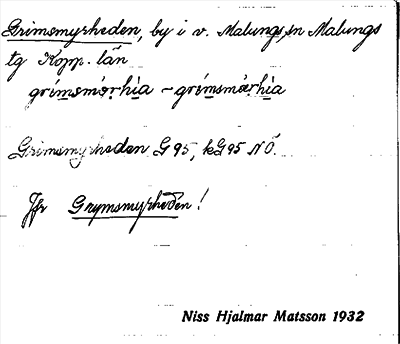 Grimsmyrheden, by i v. Malungs sn Malungs
tg Kopp. län
grímsmórhìa ~ grímsmárhìa
Grimsmyrheden G 95, kG95 NÖ.
Jfr Grymsmyrheden!
Niss Hjalmar Matsson 1932